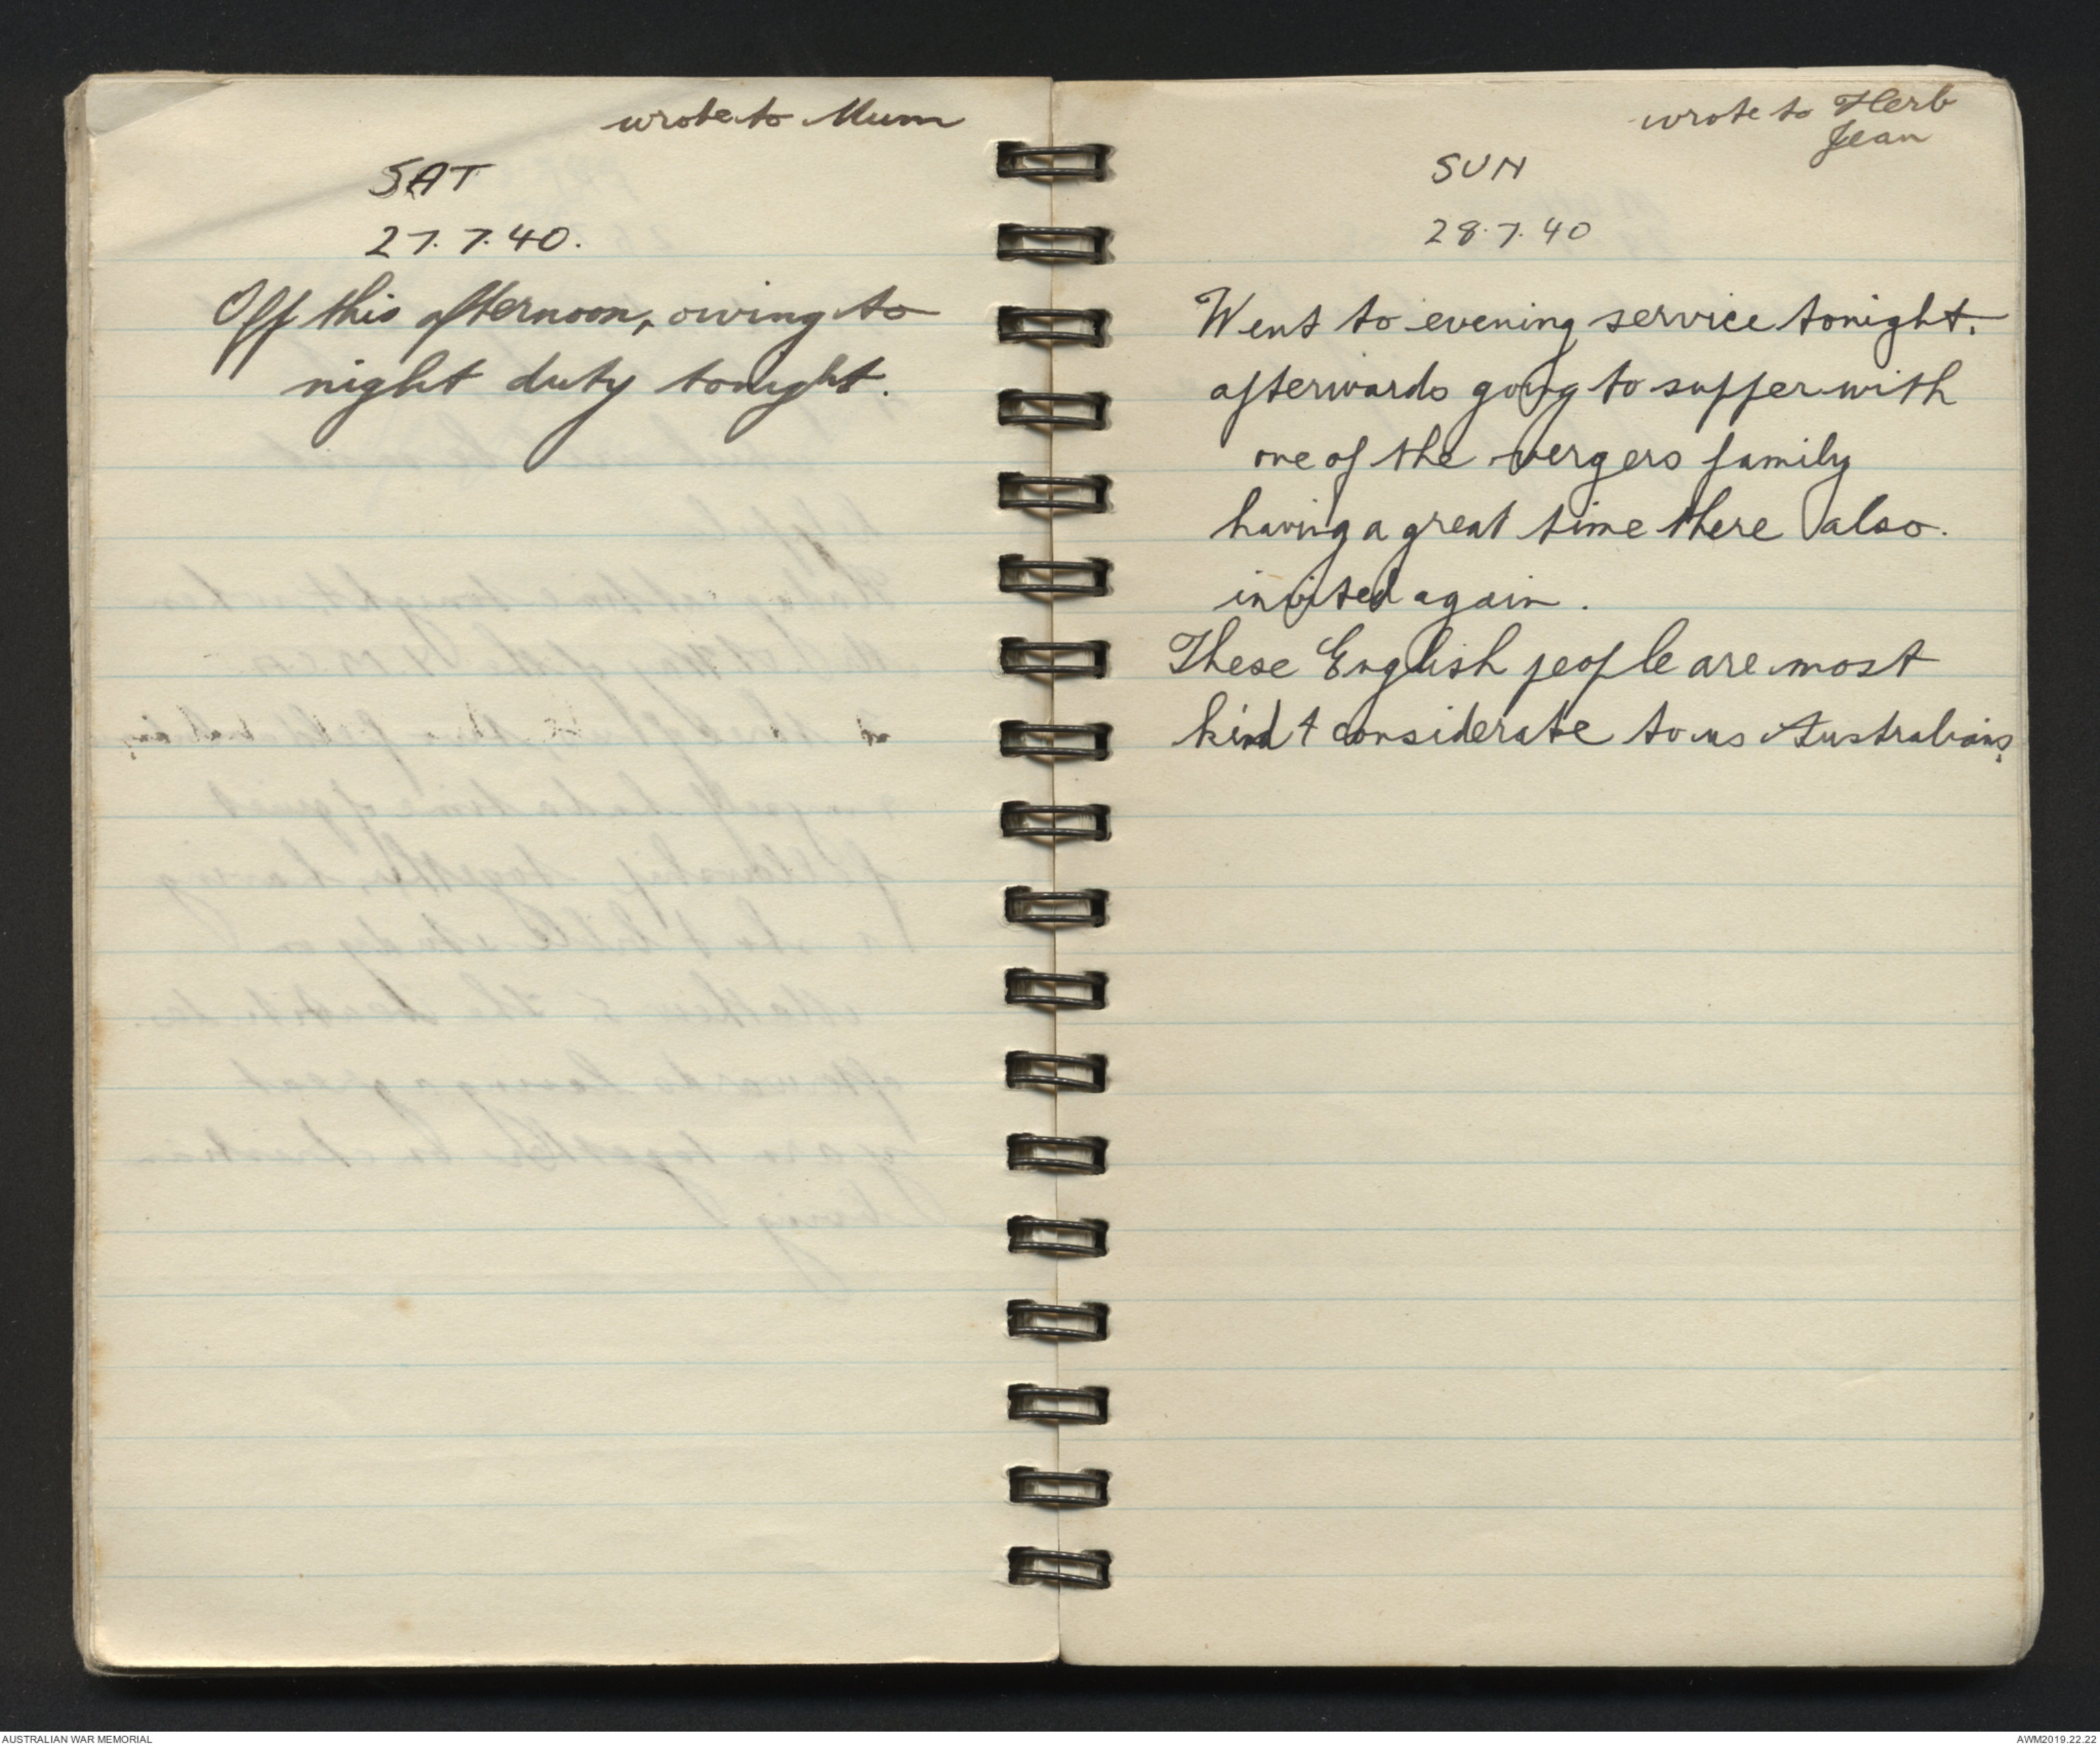 wrote to Mum
SAT
27.7.40.
Off this afternoon, owing to
night duty tonight.
wrote to Herb
Jean
SUN
28.7.40
Went to evening service tonight.
afterwards going to supper with
one of the vergers family
having a great time there also.
invited again.
These English people are most
kind + considerate to us Australians.
AUSTRALIAN WAR MEMORIAL
AWM2019.22.22